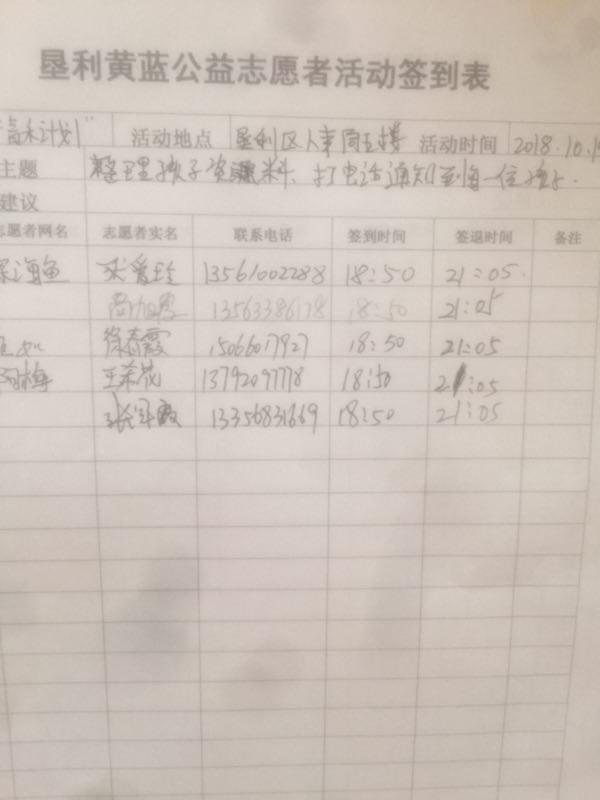 垦利黄蓝公益志愿者活动签到表
苗禾计划" 活动地点 垦利区人事局五楼 活动时间 2018.10.1
主题 整理孩子资料、打电话通知到每一位孩子.
建议
愿者网名 志愿者实名 联系电话 签到时间 签退时间 备注
深海鱼 爱玲 13561002288 18:50 21:05.
13563386178 18:50 21:05
徐春霞 15066017927 18:50 21:05
梅 王荣花 13792097778 18:50 21:05
张军霞 13356831669 18:50 21:05